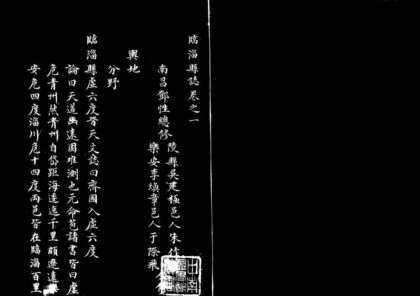 臨淄縣誌卷之一
南昌鄧性總修
陵縣吳建極邑人朱作
樂安李煥章邑人于際飛
輿地
分野
臨淄縣虛六度晉天文誌曰齊國入虛六度
論曰天道幽遠固難測也元命苞諸書皆曰虛
危青州然青州自岱距海遠逾千里頗遼遠
安危四度淄川危十四度兩邑皆在臨淄百里